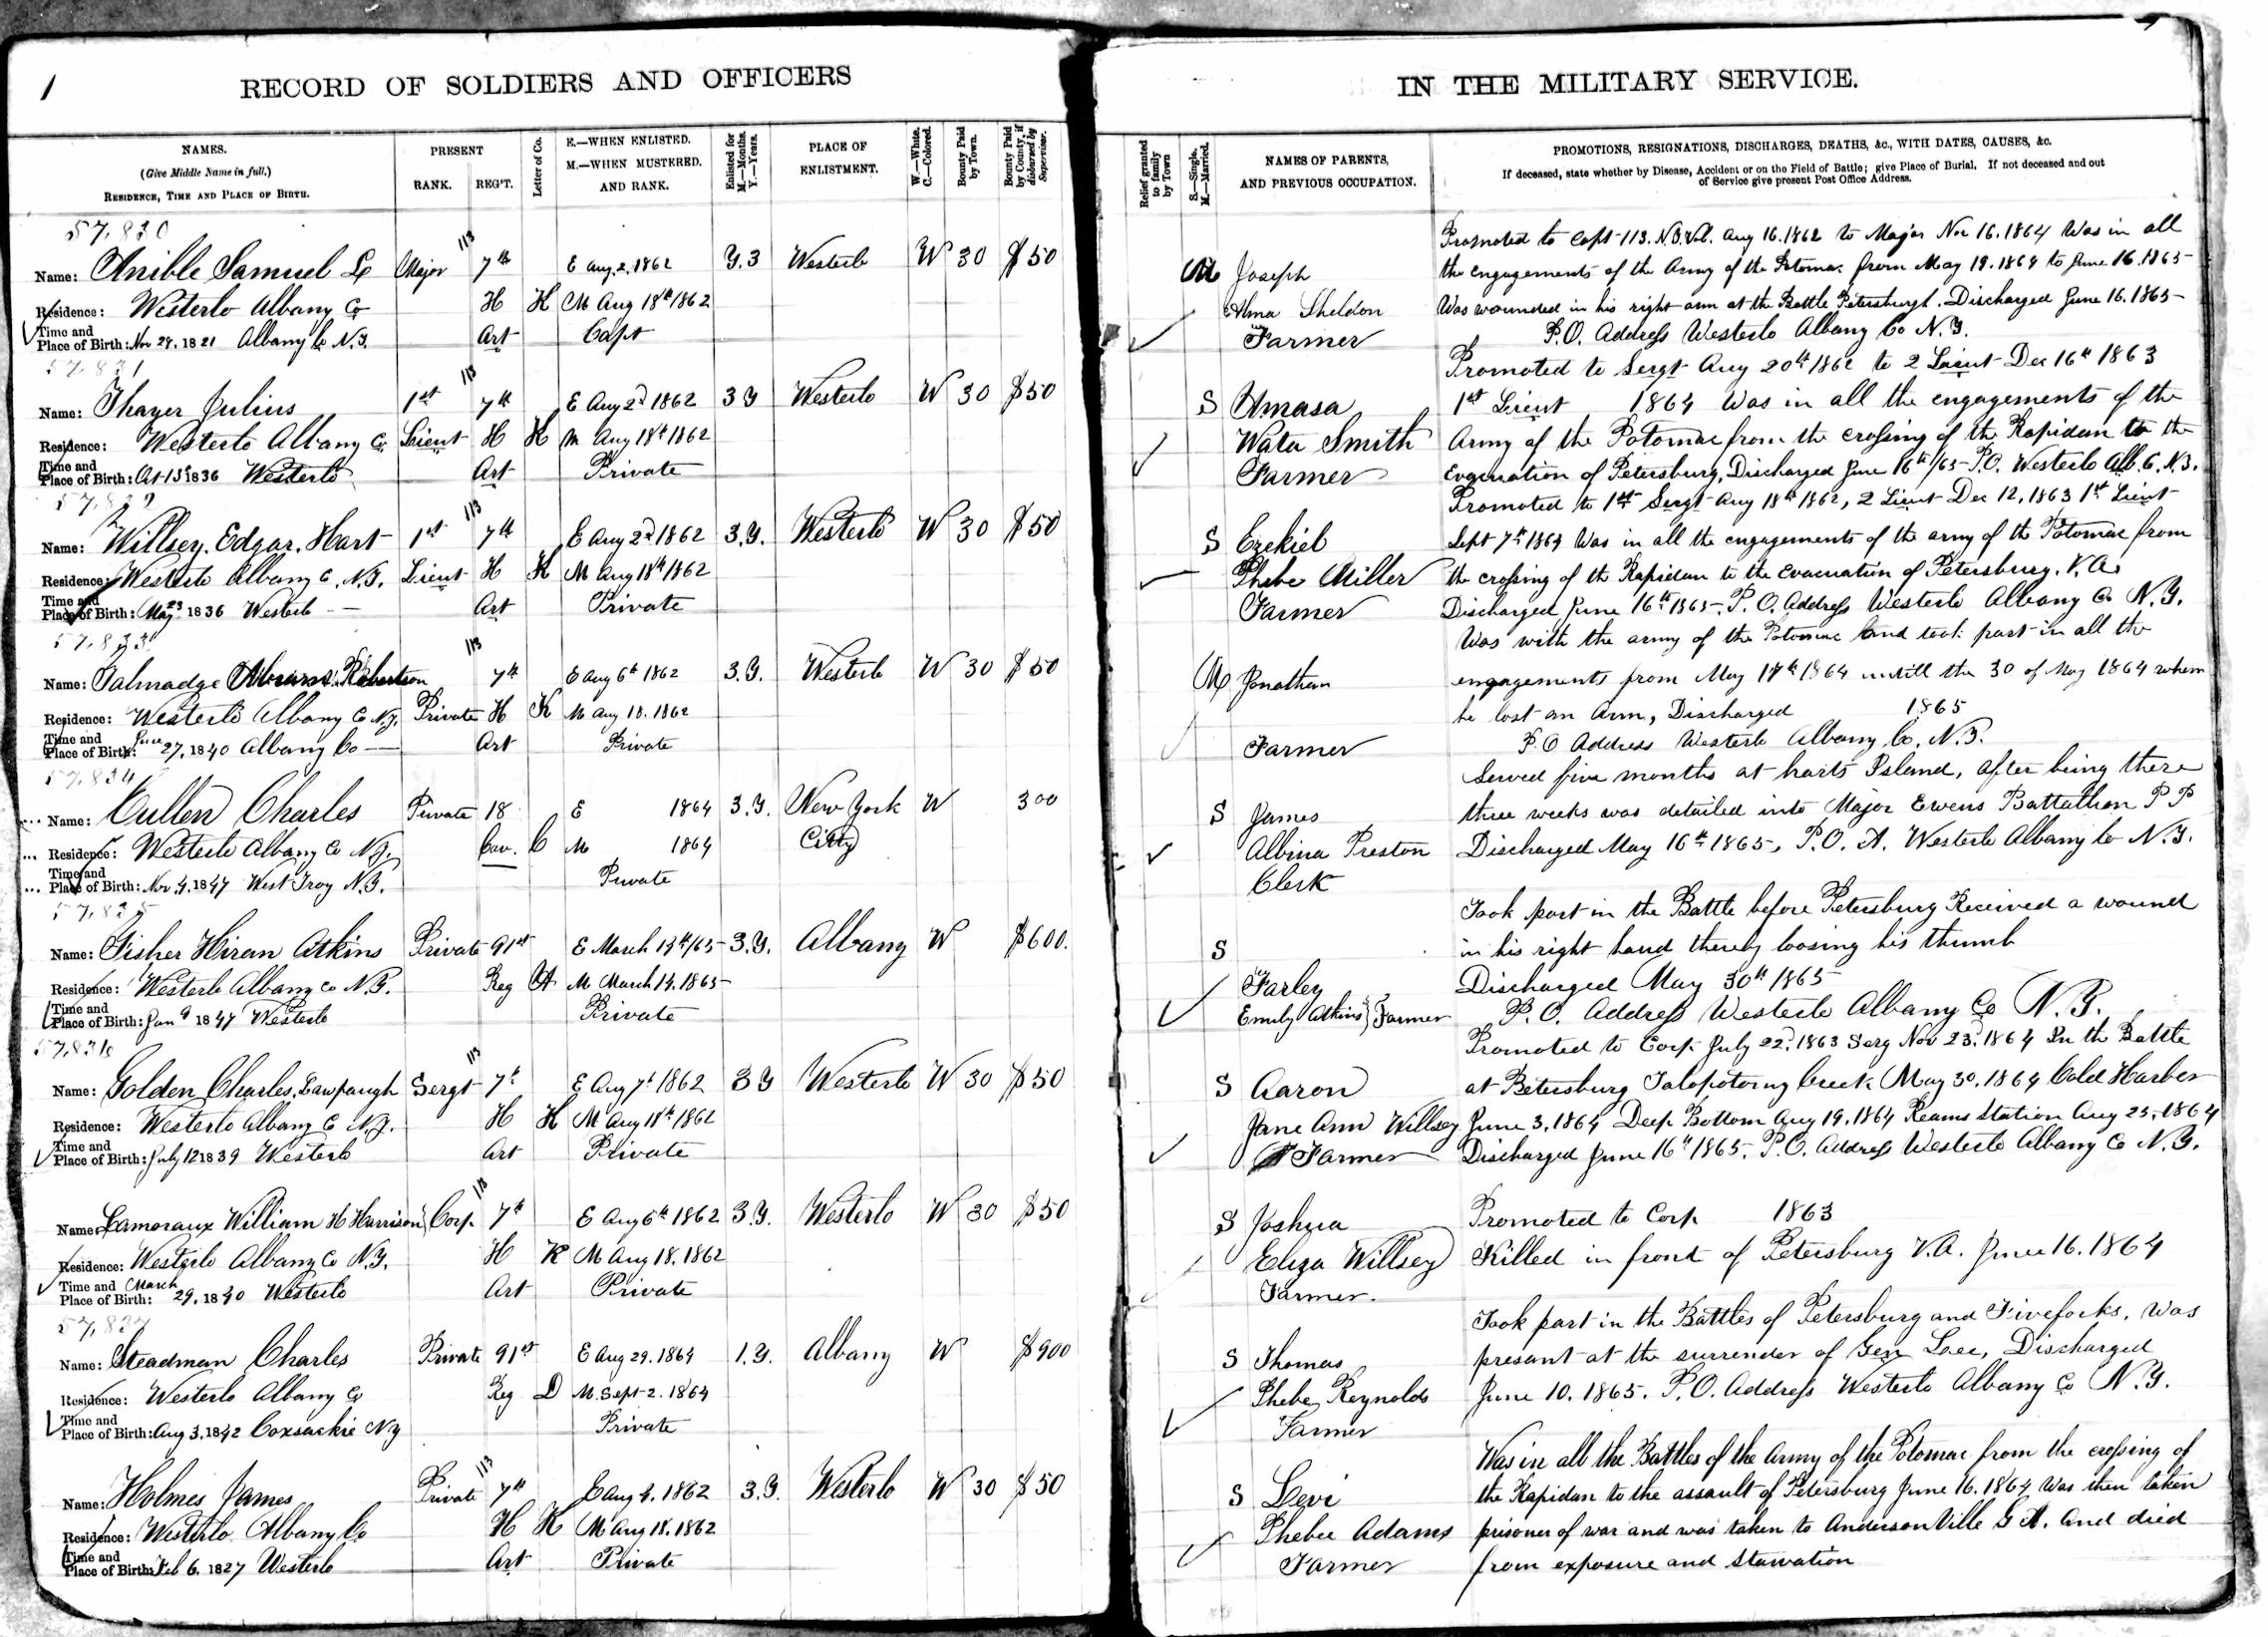 1
RECORD OF SOLDIERS AND OFFICERS
NAMES.
(Give Middle Name in full.)
RESIDENCE, TIME AND PLACE OF BIRTH.
PRESENT
RANK.
REG'T.
Letter of Co.
E.—WHEN ENLISTED.
M.—WHEN MUSTERED.
AND RANK.
Enlisted for
M.—Months.
Y.—Years.
PLACE OF
ENLISTMENT.
W.—White.
C.—Colored.
Bounty Paid
by Town.
Bounty Paid
by County, if
disbursed by
Supervisor.
57,830
113
Name: Anible Samuel L Major 7th E Aug. 2. 1862 Y. 3 Westerlo W 30 $50
Residence: Westerlo Albany Co H H M Aug 18th 1862
Time and
Place of Birth: Nov 28. 1821 Albany Co N.Y. Art Capt
57,831
113
Name: Thayer Julius 1st 7th E Aug 2d 1862 3 Y Westerlo W 30 $50
Residence: Westerlo Albany Co Lieut H H M Aug 18th 1862
Time and
Place of Birth: Oct 15 1836 Westerlo Art Private
57,832
113
Name: Willsey. Edgar. Hart 1st 7th E Aug 2d 1862 3.Y. Westerlo W 30 $50
Residence: Westerlo Albany C. N.Y. Lieut H K M Aug 18th 1862
Time and
Place of Birth: May 23 1836 Westerlo — Art Private
57,833
113
Name: Talmadge Robertson 7th E Aug 6th 1862 3.Y. Westerlo W 30 $50
Residence: Westerlo Albany Co N.Y. Private H K M Aug 18. 1862
Time and
Place of Birth: June 27, 1840 Albany Co — Art Private
57,834
Name: Cullen Charles Private 18 E 1864 3.Y. New York W 300
Residence: Westerlo Albany Co N.Y. Cav. C M 1864 City
Time and
Place of Birth: Nov 4. 1847 West Troy N.Y. Private
57,835
Name: Fisher Hiram Atkins Private 91st E March 13th/65 3.Y. Albany W $600.
Residence: Westerlo Albany Co N.Y. Reg A M March 14. 1865
Time and
Place of Birth: Jan 9 1847 Westerlo Private
57,836
113
Name: Golden Charles. Lawpaugh Sergt 7th E Aug 7th 1862 3 Y Westerlo W 30 $50
Residence: Westerlo Albany C N.Y. H H M Aug 18th 1862
Time and
Place of Birth: July 12 1839 Westerlo Art Private
113
Name: Lamoraux William H Harrison Corp. 7th E Aug 6th 1862 3.Y. Westerlo W 30 $50
Residence: Westerlo Albany Co N.Y. H K M Aug 18. 1862
Time and
Place of Birth: March 29. 1840 Westerlo Art Private
57,837
Name: Steadman Charles Private 91st E Aug 29. 1864 1.Y. Albany W $900
Residence: Westerlo Albany Co Reg D M. Sept 2. 1864
Time and
Place of Birth: Aug 3, 1842 Coxsackie N Y Private
113
Name: Holmes James Private 7th E Aug 4. 1862 3.Y. Westerlo W 30 $50
Residence: Westerlo. Albany Co H K M Aug 18. 1862
Time and
Place of Birth: Feb 6. 1827 Westerlo Art Private
IN THE MILITARY SERVICE.
Relief granted
to family
by Town
S.—Single.
M.—Married.
NAMES OF PARENTS,
AND PREVIOUS OCCUPATION.
PROMOTIONS, RESIGNATIONS, DISCHARGES, DEATHS, &c., WITH DATES, CAUSES, &c.
If deceased, state whether by Disease, Accident or on the Field of Battle; give Place of Burial. If not deceased and out
of Service give present Post Office Address.
Promoted to Capt 113. N.Y. Vol. Aug 16. 1862 to Major Nov 16. 1864 Was in all
M Joseph the engagements of the Army of the Potomac from May 19. 1864 to June 16. 1865
Alma Sheldon Was wounded in his right arm at the Battle Petersburgh. Discharged June 16. 1865
Farmer P.O. Address Westerlo Albany Co N.Y.
Promoted to Sergt Aug 20th 1862 to 2 Lieut Dec 16th 1863
S Amasa 1st Lieut 1864 Was in all the engagements of the
Wata Smith Army of the Potomac from the crossing of the Rapidan to the
Farmer Evacuation of Petersburg, Discharged June 16th/65 P.O. Westerlo Alb. C. N.Y.
Promoted to 1st Sergt Aug 18th 1862, 2 Lieut Dec 12, 1863 1st Lieut
S Ezekiel Sept 7th 1864 Was in all the engagements of the army of the Potomac from
Phebe Miller the crossing of th Rapidan to the Evacuation of Petersburg. V.A.
Farmer Discharged June 16th 1865. P. O. Address Westerlo Albany Co N.Y.
Was with the army of the Potomac and took part in all the
M Jonathan engagements from May 17th 1864 untill the 30 of May 1864 when
he lost an Arm, Discharged 1865
Farmer P.O Address Westerlo Albany Co. N.Y.
Served five months at harts Island, after being there
S James three weeks was detailed into Major Ewens Battathon P P
Albina Preston Discharged May 16th 1865, P.O. A. Westerlo Albany Co N.Y.
Clerk
Took part in the Battle before Petersburg Received a wound
S in his right hand thereby loosing his thumb
Farley Discharged May 30th 1865
Emily Atkins } Farmer P.O. Address Westerlo Albany Co N.Y.
Promoted to Corp. July 22d. 1863 Serg Nov 23d. 1864 In th Battle
S Aaron at Petersburg Talopotomy Creek May 30. 1864 Cold Harbor
Jane Ann Willsey June 3. 1864 Deep Bottom Aug 19. 1864 Reams Station Aug 25. 1864
Farmer Discharged June 16th 1865. P.O. Address Westerlo Albany Co N.Y.
S Joshua Promoted to Corp 1863
Eliza Willsey Killed in front of Petersburg V.A. June 16. 1864
Farmer.
Took part in the Battles of Petersburg and Fiveforks. Was
S Thomas presant at the surrender of Gen Lee, Discharged
Phebe Reynolds June 10. 1865. P.O. Address Westerlo Albany Co N.Y.
Farmer
Was in all the Battles of the Army of the Potomac from the crossing of
S Levi the Rapidan to the assault of Petersburg June 16. 1864 Was then taken
Phebee Adams prisoner of war and was taken to AndersonVille G A. and died
Farmer from exposure and starvation